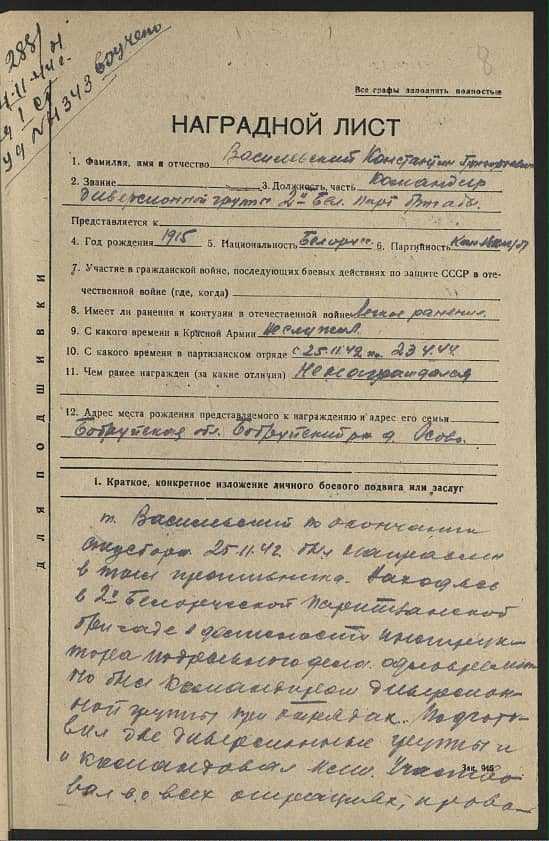 283/
4.11.44 г.
Уд № 11343 вручено
8
Все графы заполнять полностью
НАГРАДНОЙ ЛИСТ
1. Фамилия, имя и отчество Василевский Константин Григорьевич
2. Звание 3. Должность, часть Командир
диверсионной группы 2й Бел. парт. бригады.
Представляется к
4. Год рождения 1915 5. Национальность Белорус. 6. Партийность
7. Участие в гражданской войне, последующих боевых действиях по защите СССР в оте-
чественной войне (где, когда)
8. Имеет ли ранения и контузии в отечественной войне Легкое ранение.
9. С какого времени в Красной Армии Не служил.
10. С какого времени в партизанском отряде с 25.11.42 по 23.4.44.
11. Чем ранее награжден (за какие отличия) Не награждался
12. Адрес места рождения представляемого к награждению и адрес его семьи
Бобруйская обл. Бобруйский р-н д. Осово.
ДЛЯ ПОДШИВКИ
1. Краткое, конкретное изложение личного боевого подвига или заслуг
т. Василевский по окончании
спецсбора 25.11.42 был направлен
в тыл противника. Находясь
в 2й Белорусской партизанской
бригаде в должности инструк-
тора подрывного дела одновремен-
но был командиром диверсион-
ной группы при отрядах. Подгото-
вил две диверсионные группы и
и командовал ими. Участво-
вал во всех операциях, прово-
Зак. 945